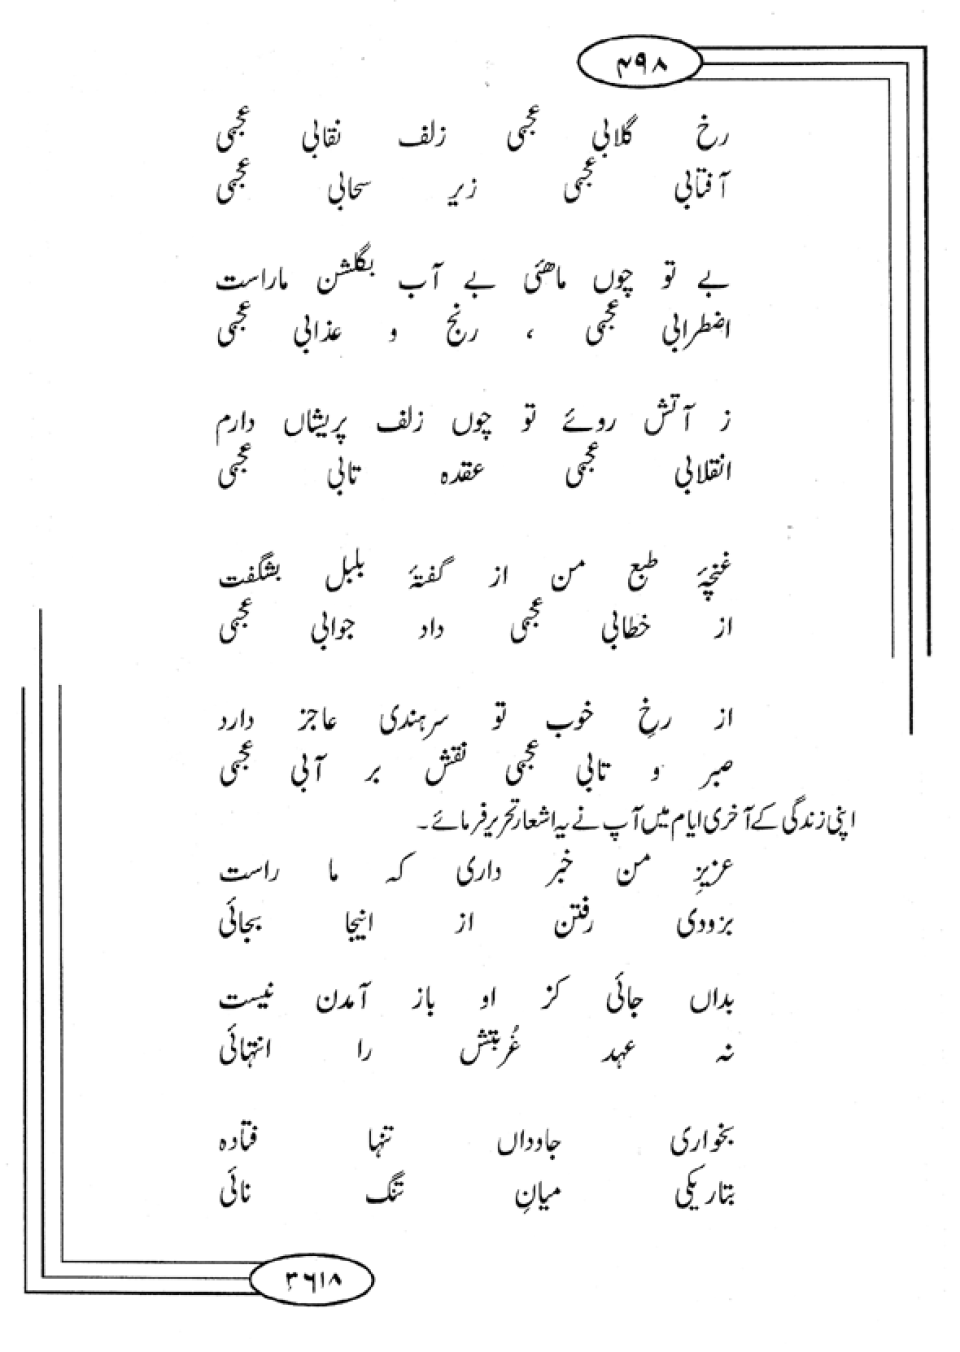 ۴۹۸
رخ گلابی عجبی زلف نقابی عجبی
آفتابی عجبی زیر سحابی عجبی
بے تو چوں ماھئی بے آب بگلشن ماراست
اضطرابی عجبی ، رنج و عذابی عجبی
ز آتش روئے تو چوں زلف پریشاں دارم
انقلابی عجبی عقدہ تابی عجبی
غنچۂ طبع من از گفتۂ بلبل بشگفت
از خطابی عجبی داد جوابی عجبی
از رخِ خوب تو سرہندی عاجز دارد
صبر و تابی عجبی نقش بر آبی عجبی
اپنی زندگی کے آخری ایام میں آپ نے یہ اشعار تحریر فرمائے۔
عزیزِ من خبر داری کہ ما راست
بزودی رفتن از اینجا بجائی
بداں جائی کز او باز آمدن نیست
نہ عہد غُربتش را انتہائی
بخواری جاوداں تنہا فتادہ
بتاریکی میانِ تنگ نائی
۳۶۱۸